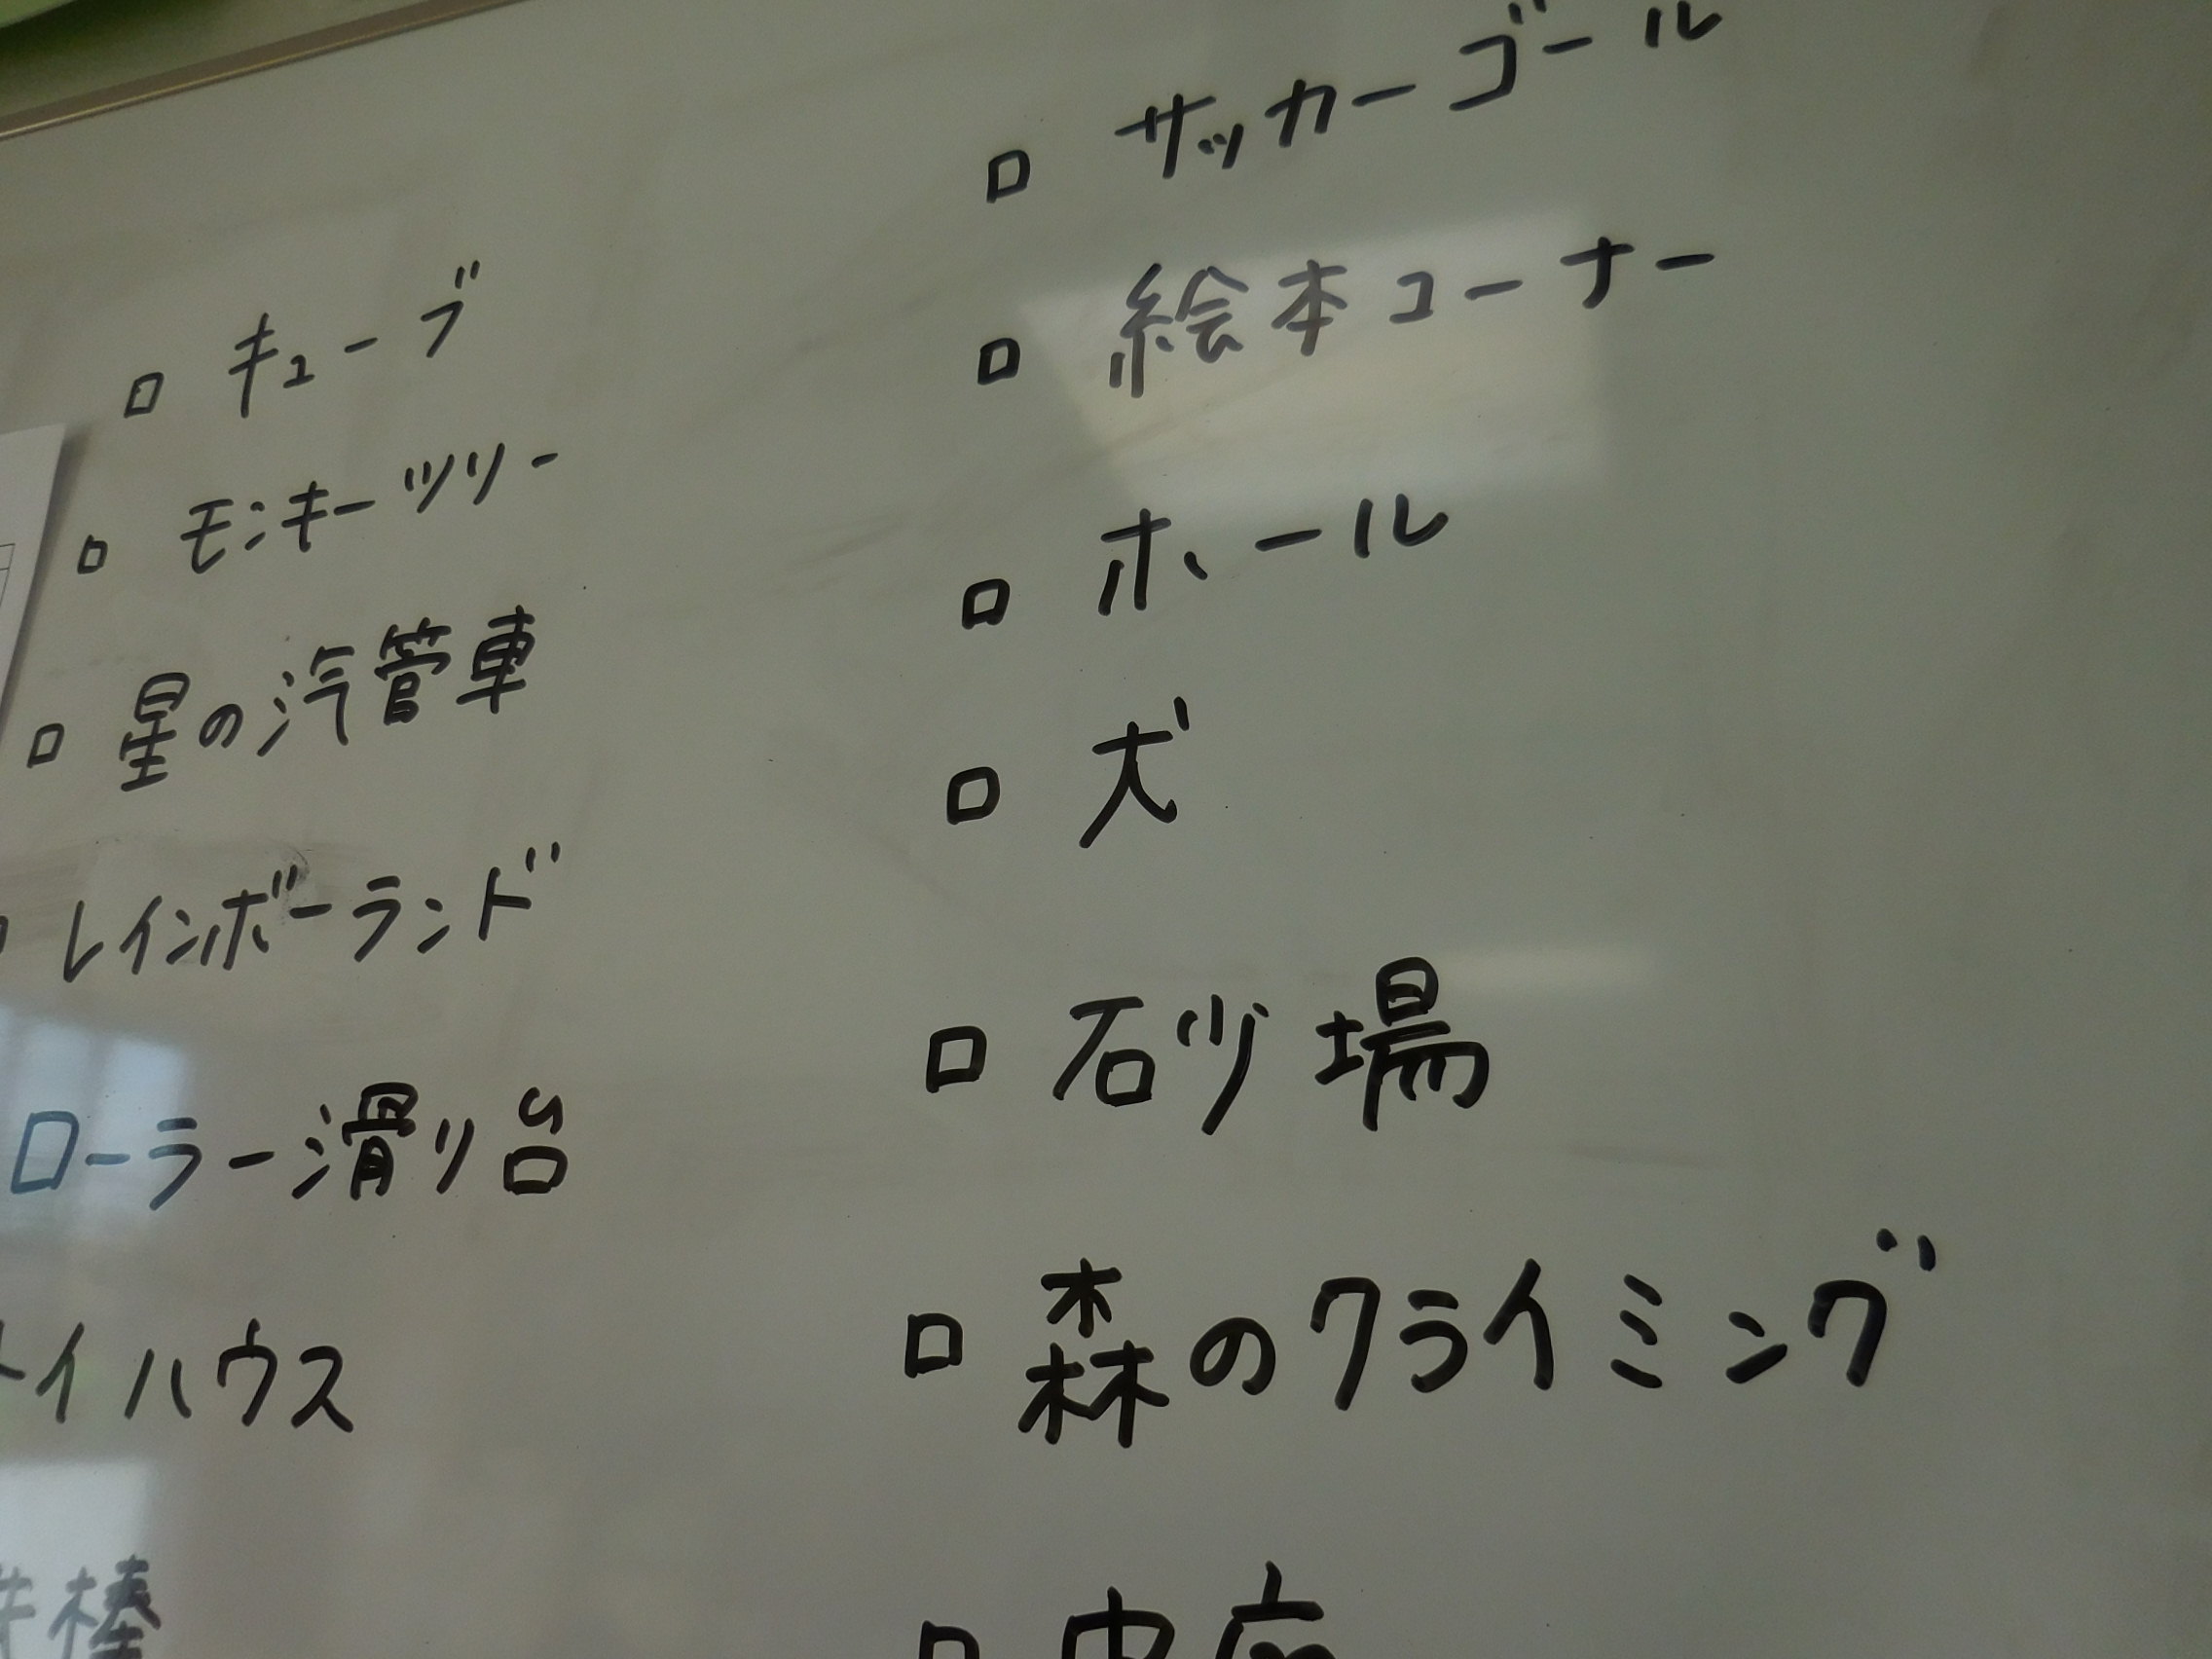 □ キューブ
□ モンキーツリー
□ 星の汽管車
レインボーランド
ローラー滑り台
トイハウス
鉄棒
□ サッカーゴール
□ 絵本コーナー
□ ホール
□ 犬
□ 砂場
□ 森のクライミング
□ 中庭